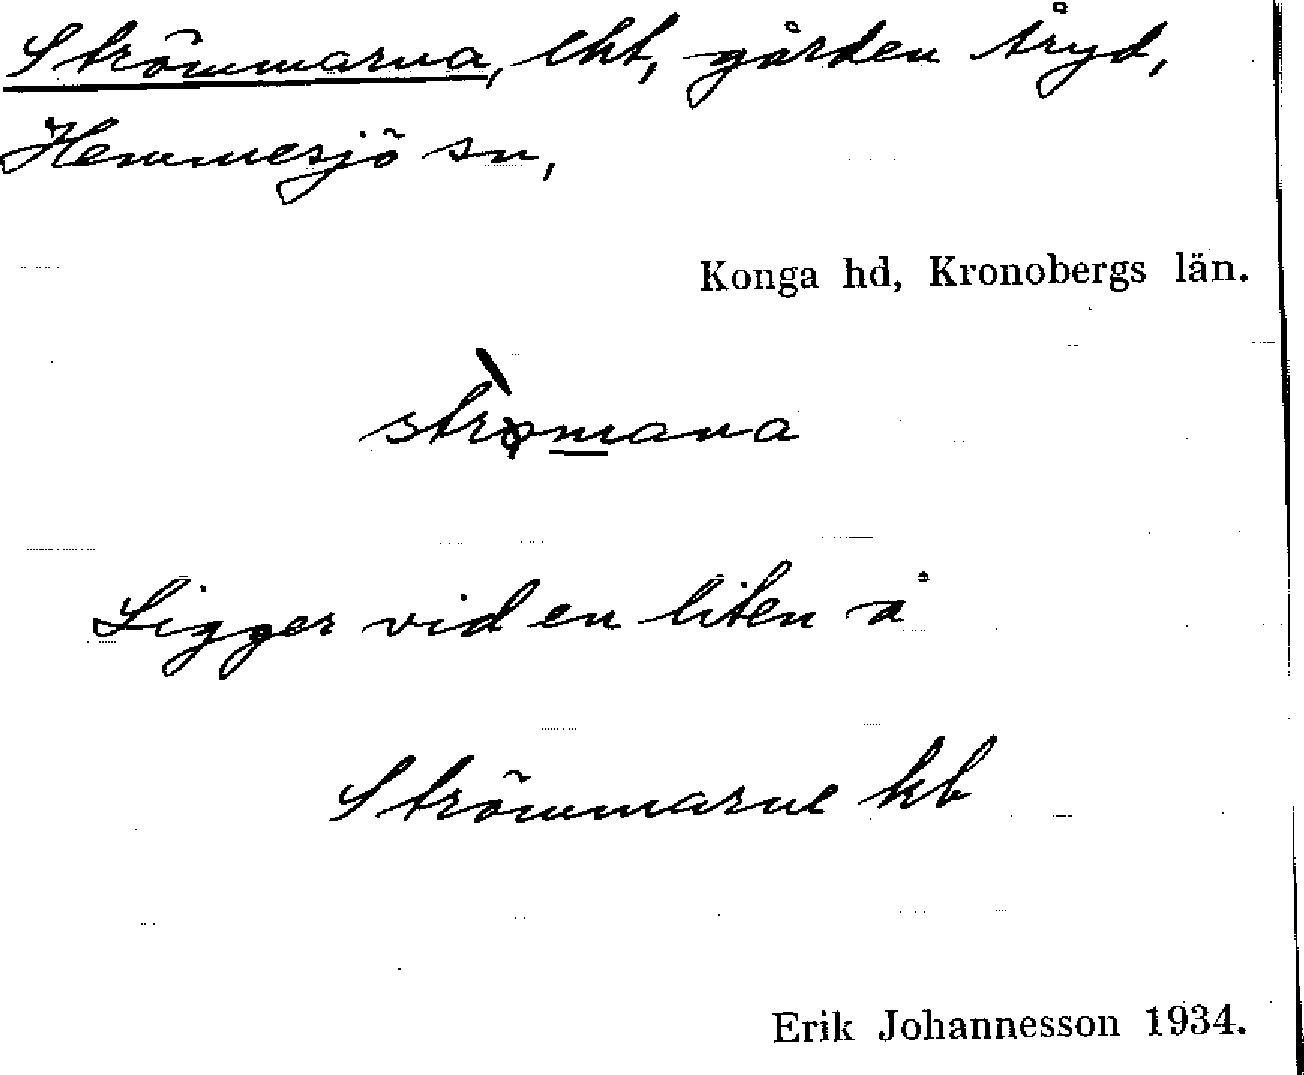 Strömmarna, lht, gården Åryd,
Hemmesjö sn,
Konga hd, Kronobergs län.
Ligger vid en liten å
Strömmarne kb
Erik Johannesson 1934.